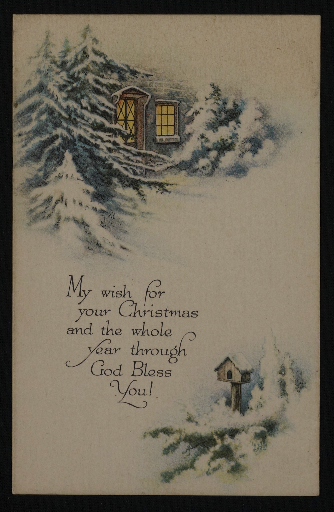 My wish for
your Christmas
and the whole
year through
God Bless
You!